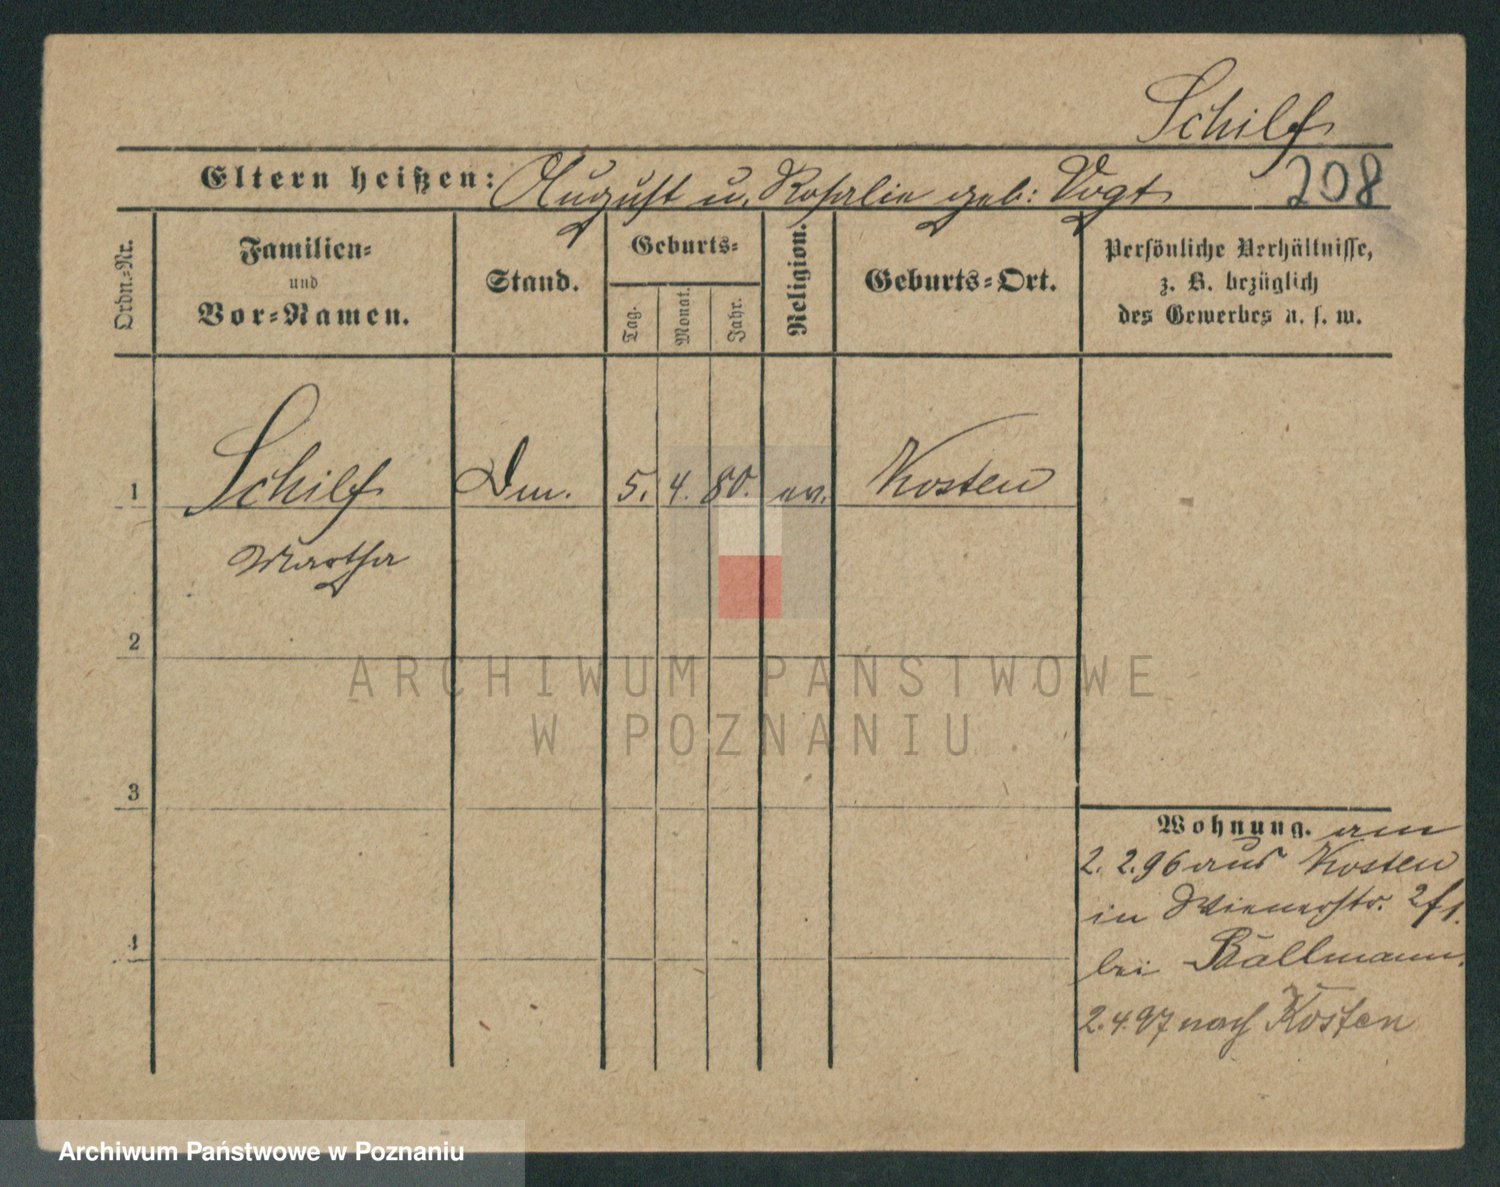 Schilf
Eltern heißen: August u. Rosalie geb: Vogt 208
Ordn.-Nr.
Familien-
und
Vor-Namen.
Stand.
Geburts-
Tag.
Monat.
Jahr.
Religion.
Geburts-Ort.
Persönliche Verhältnisse,
z. B. bezüglich
des Gewerbes u. s. w.
1 Schilf Dm. 5. 4. 80. ev. Kosten
Martha
2
3
4
Wohnung. am
2. 2. 96 aus Kosten
in Wienerstr. 2/1.
bei Ballmann.
2. 4. 97 nach Kosten
ARCHIWUM PAŃSTWOWE
W POZNANIU
Archiwum Państwowe w Poznaniu